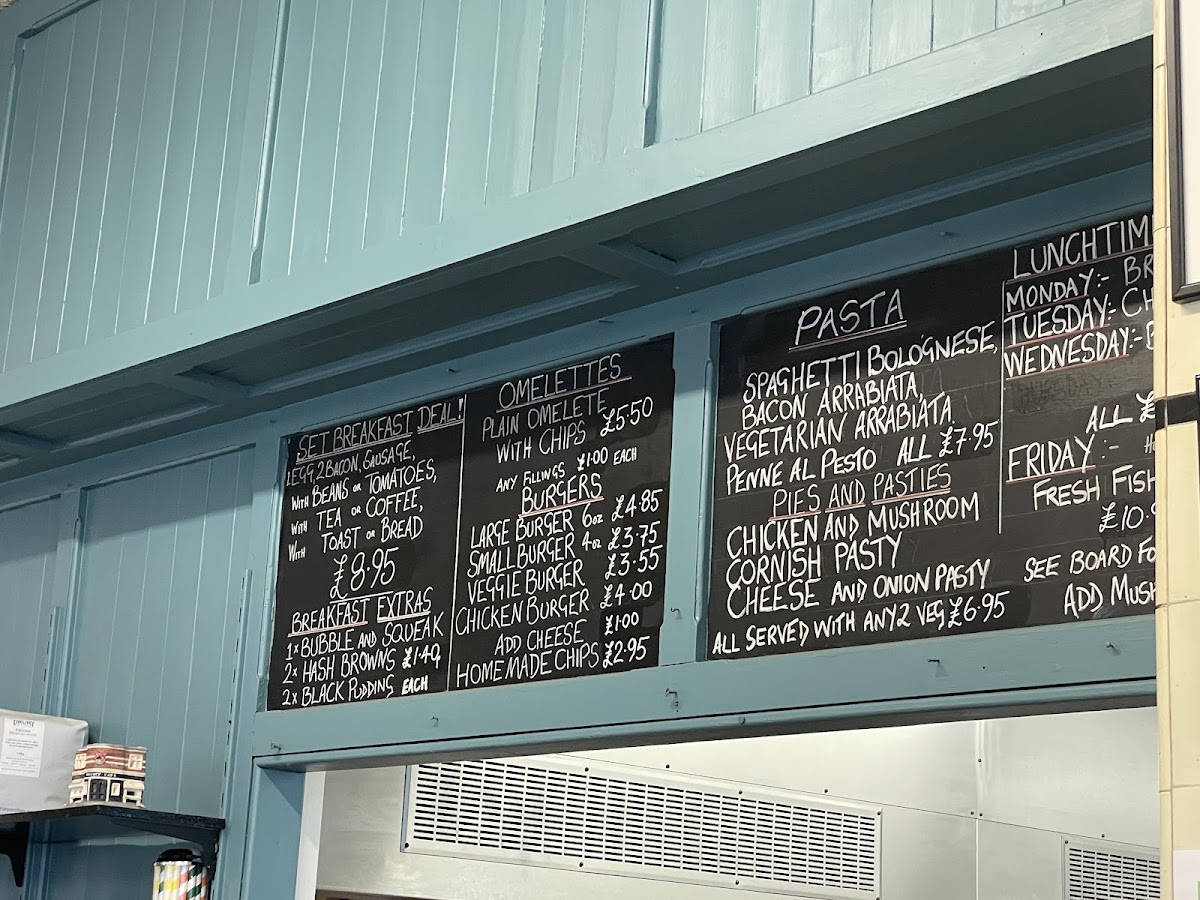 SET BREAKFAST DEAL!
1 EGG, 2 BACON, SAUSAGE,
WITH BEANS OR TOMATOES,
WITH TEA OR COFFEE,
WITH TOAST OR BREAD
£8.95
BREAKFAST EXTRAS
1x BUBBLE AND SQUEAK
2x HASH BROWNS £1.40
2x BLACK PUDDING EACH
OMELETTES
PLAIN OMELETE
WITH CHIPS £5.50
ANY FILLINGS £1.00 EACH
BURGERS
LARGE BURGER 6oz £4.85
SMALL BURGER 4oz £3.75
VEGGIE BURGER £3.55
CHICKEN BURGER £4.00
ADD CHEESE £1.00
HOMEMADE CHIPS £2.95
PASTA
SPAGHETTI BOLOGNESE,
BACON ARRABIATA,
VEGETARIAN ARRABIATA
PENNE AL PESTO ALL £7.95
PIES AND PASTIES
CHICKEN AND MUSHROOM
CORNISH PASTY
CHEESE AND ONION PASTY
ALL SERVED WITH ANY 2 VEG £6.95
LUNCHTIM
MONDAY:- BR
TUESDAY:- CH
WEDNESDAY:-
ALL £
FRIDAY:-
FRESH FISH
£10.9
SEE BOARD FO
ADD MUSH